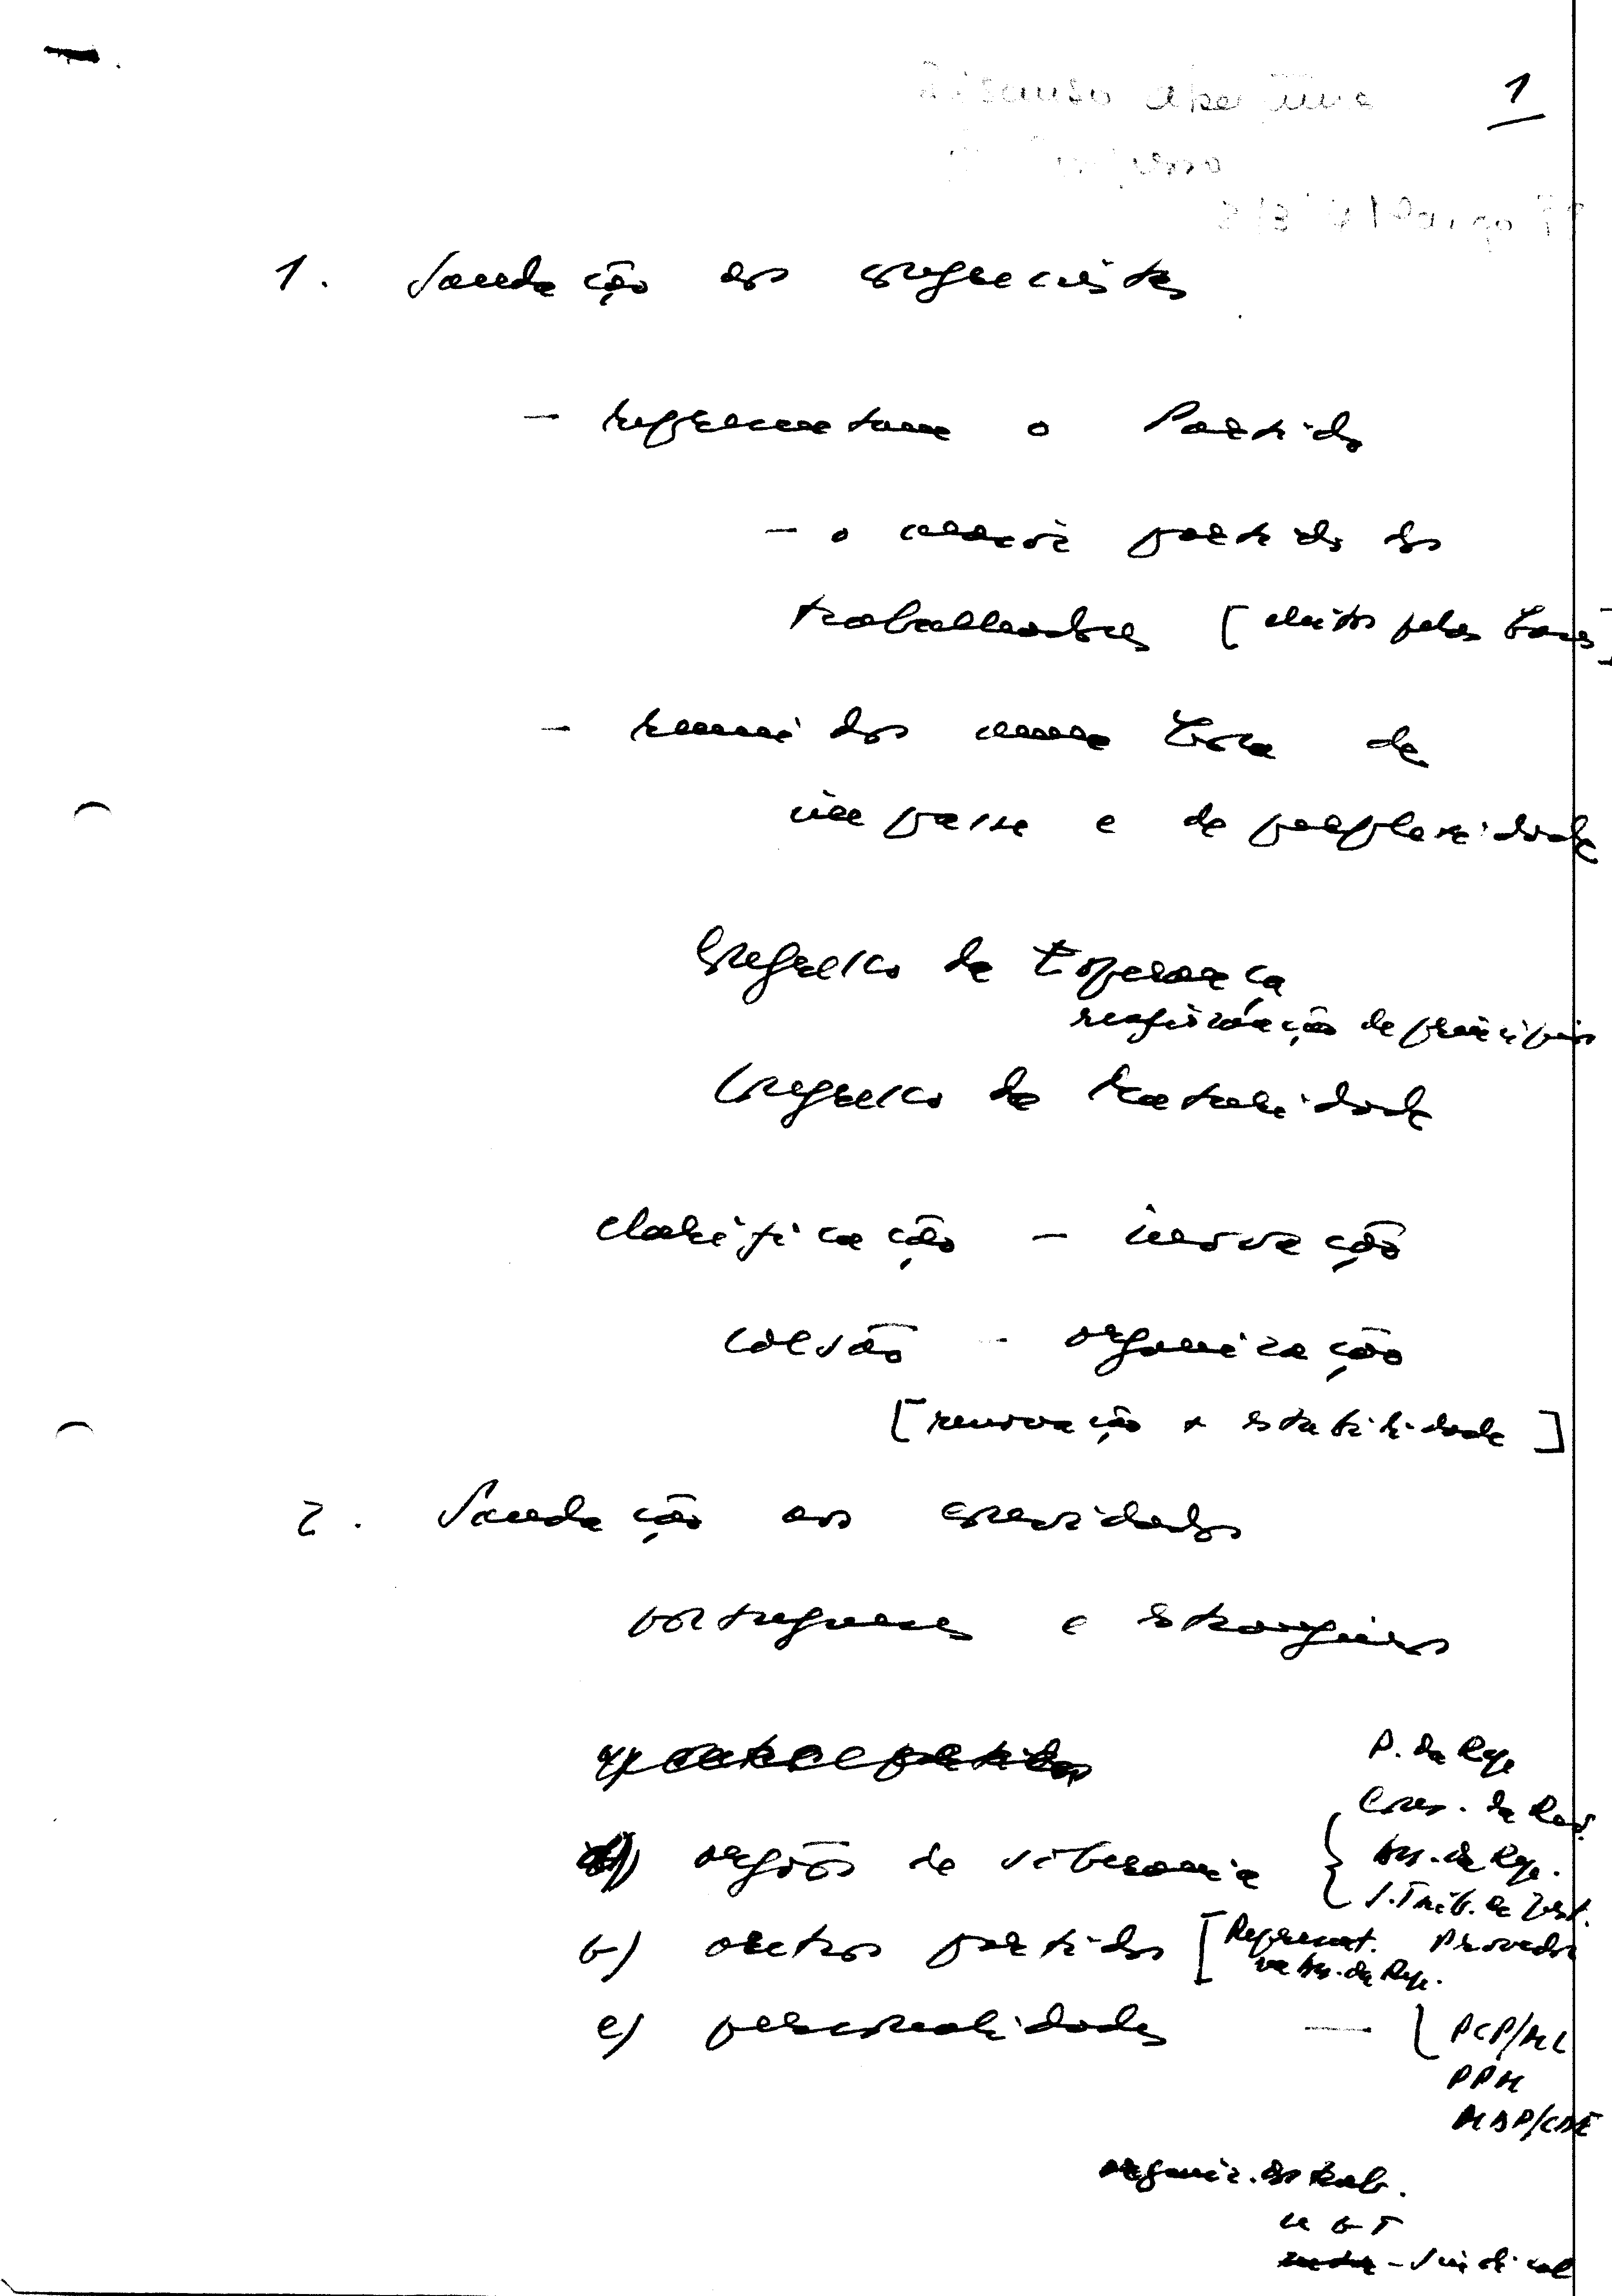 1
Discurso abertura
Congresso
1. Saudação aos congressistas
- representam o Partido
- o maior partido dos
trabalhadores [eleitos pelas bases]
- reunidos numa hora de
impasse e de perplexidade
Congresso da Esperança
reafirmação de princípios
Congresso da
clarificação - inovação
coesão - organização
[renovação e estabilidade]
2. Saudação aos convidados
portugueses e estrangeiros
a) outros partidos
P. da Rep.
Cons. da Rev.
a) orgãos de soberania { Ass. da Rep.
S. Trib. de Just.
b) outros partidos [Represent. Provedor
na Ass. da Rep.
c) personalidades - { PCP/ML
PPM
MDP/CDE
organiz. dos trab.
UGT
- Sindical